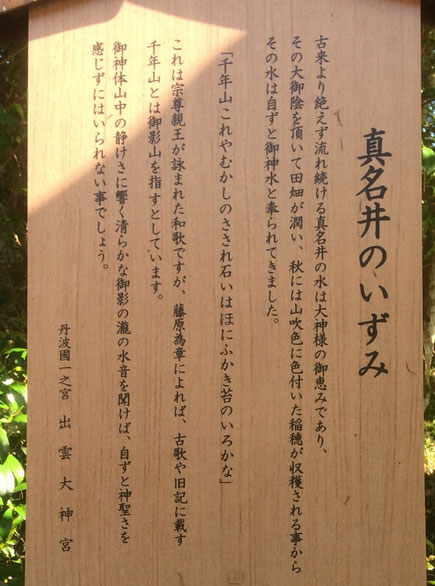 真名井のいずみ
古来より絶えず流れ続ける真名井の水は大神様の御恵みであり、
その大御陰を頂いて田畑が潤い、秋には山吹色に色付いた稲穂が収穫される事から
その水は自ずと御神水と奉られてきました。
「千年山これやむかしのさされ石いはほにふかき苔のいろかな」
これは宗尊親王が詠まれた和歌ですが、藤原為章によれば、古歌や旧記に載す
千年山とは御影山を指すとしています。
御神体山中の静けさに響く清らかな御影の瀧の水音を聞けば、自ずと神聖さを
感じずにはいられない事でしょう。
丹波國一之宮 出雲大神宮